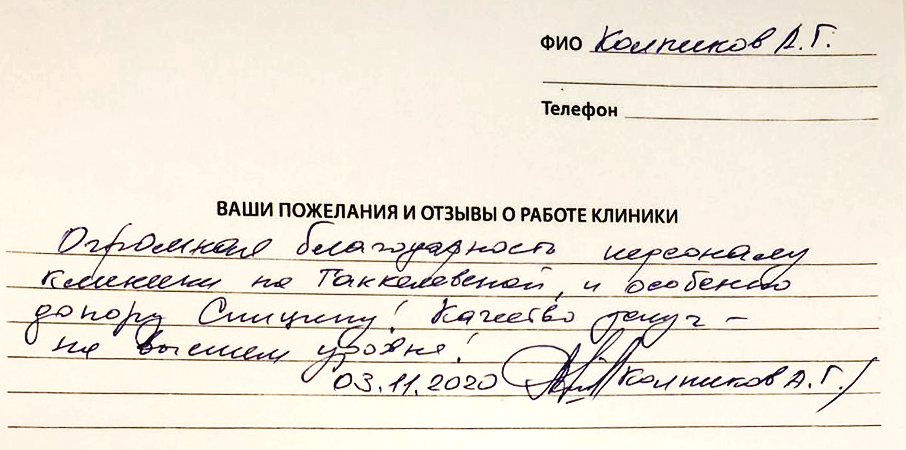 ФИО Колпиков А.Г.
Телефон
ВАШИ ПОЖЕЛАНИЯ И ОТЗЫВЫ О РАБОТЕ КЛИНИКИ
Огромная благодарность персоналу
клиники на Гаккелевской, и особенно
доктору Спицину! Качество услуг –
на высшем уровне!
03.11.2020 /Колпиков А.Г./